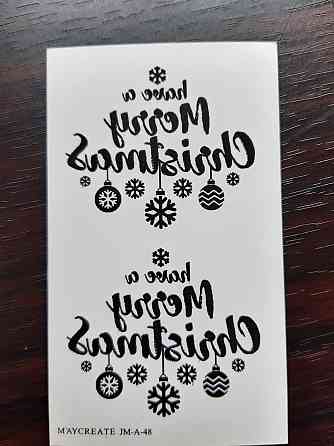 have a
Merry
Christmas
have a
Merry
Christmas
MAYCREATE JM-A-48